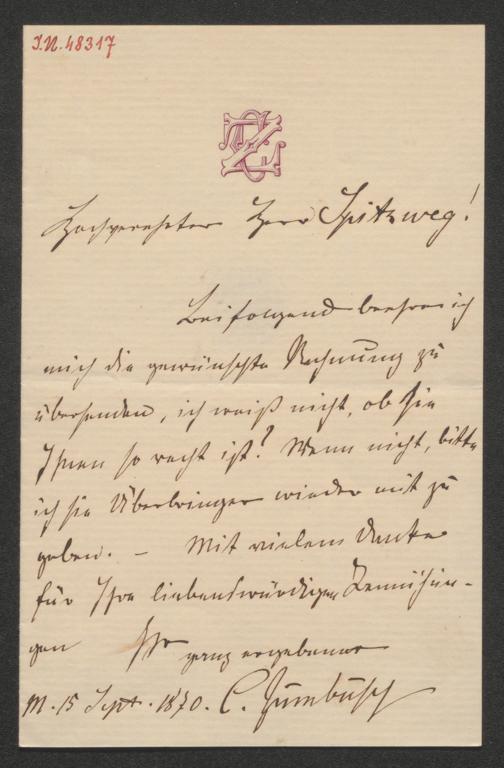 I.N. 48317
Hochverehrter Herr Spitzweg!
Beifolgend beehre ich
mich die gewünschte Rechnung zu
übersenden, ich weiß nicht, ob sie
Ihnen so recht ist? Wenn nicht, bitte
ich sie Überbringer wieder mit zu
geben. – Mit vielem Danke
für Ihre liebenswürdigen Bemühun-
gen Ihr ganz ergebener
M. 15 Sept. 1870. C. Zumbusch